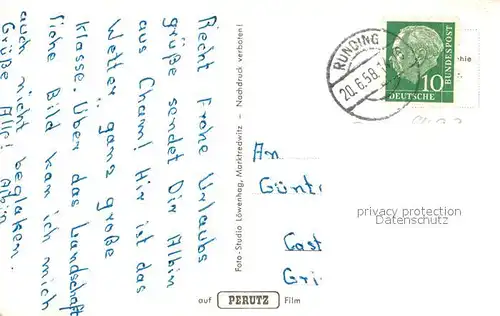 Recht frohe Urlaubs
grüße sendet Dir Albin
aus Cham! Hir ist das
Wetter ganz große
klasse. Über das Landschaft
siehe Bild kan ich mich
auch nicht beglaken.
Grüße Alle! Albin
Foto-Studio Löwenhag, Marktredwitz – Nachdruck verboten!
auf PERUTZ Film
RUNDING
20.6.58.
10
DEUTSCHE
BUNDESPOST
An
Günt
Cast
Gri
privacy protection
DATENSCHUTZ